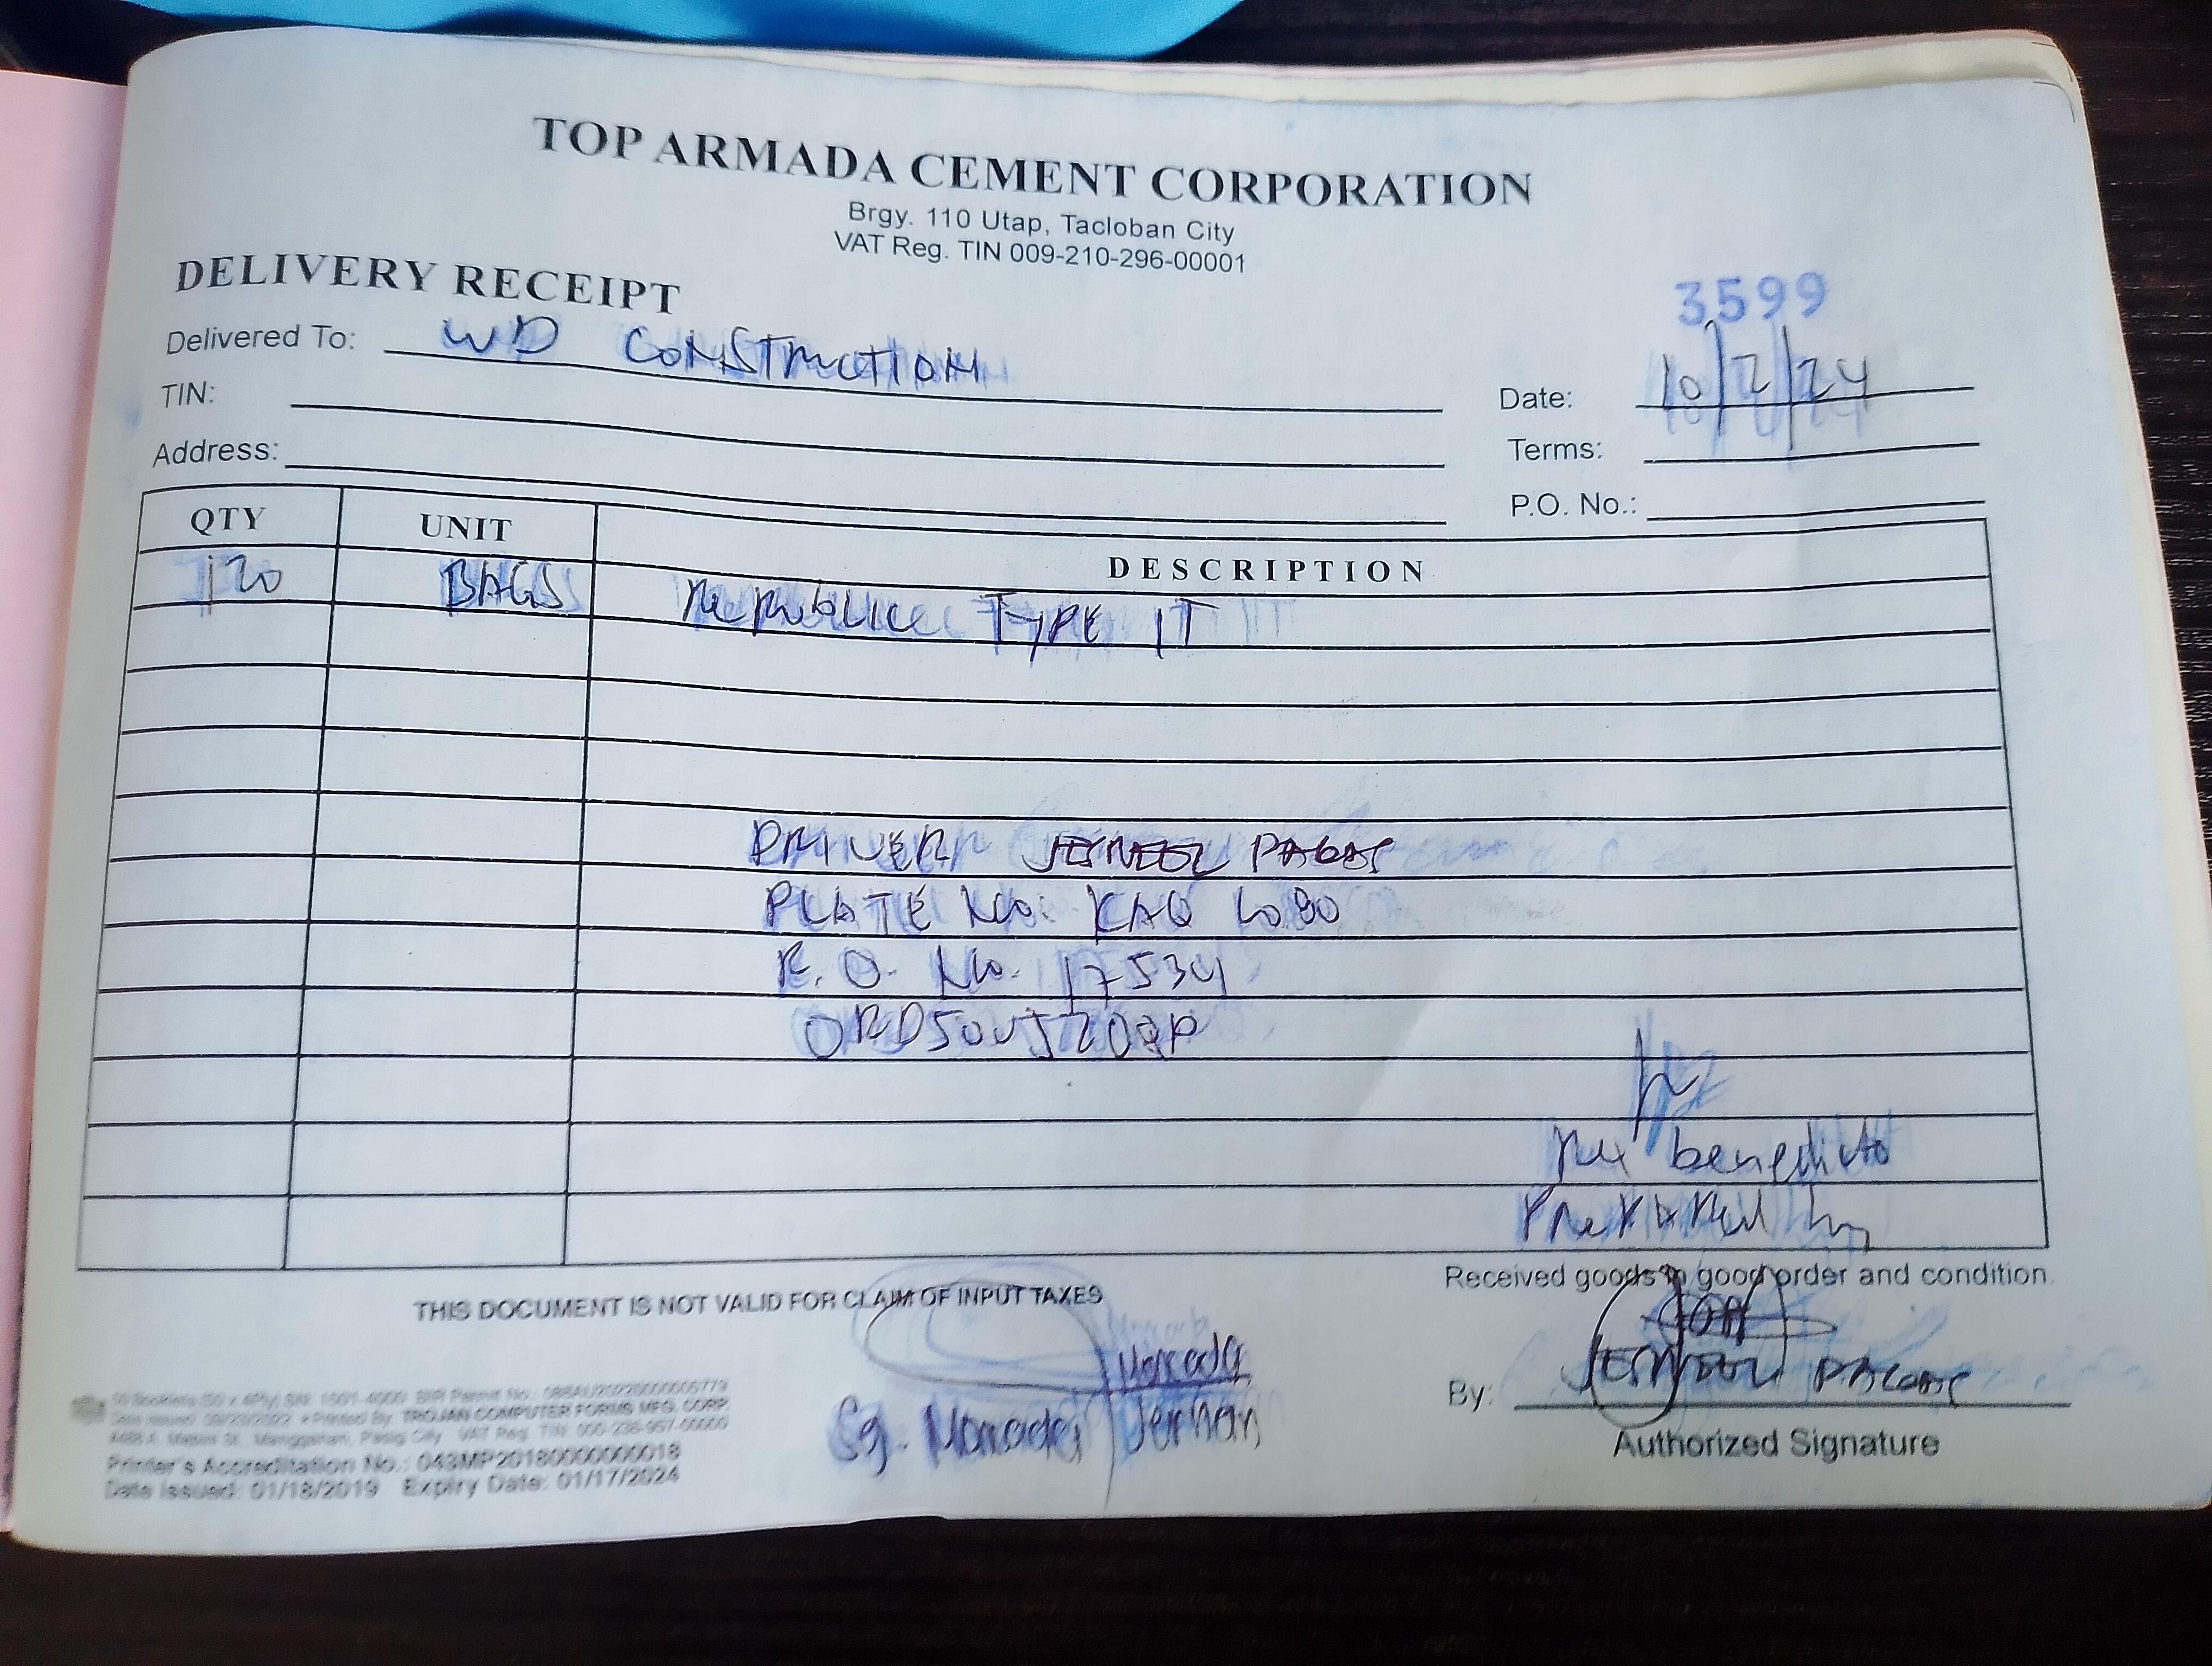 TOP ARMADA CEMENT CORPORATION
Brgy. 110 Utap, Tacloban City
VAT Reg. TIN 009-210-296-00001
DELIVERY RECEIPT
3599
Delivered To: WD CONSTRUCTION
TIN:
Date: 10/2/24
Address:
Terms:
P.O. No.:
QTY UNIT DESCRIPTION
120 BAGS REPUBLIC TYPE IT
DRIVER
PLATE No: KAQ
R.O. No. 17534
Rex benedicto
Prepared by
THIS DOCUMENT IS NOT VALID FOR CLAIM OF INPUT TAXES
Received goods in good order and condition
Sg. Moncada Jerhan
By:
Authorized Signature
TROJAN COMPUTER FORMS MFG. CORP.
Printer's Accreditation No.: 043MP20180000000018
Date Issued: 01/18/2019 Expiry Date: 01/17/2024